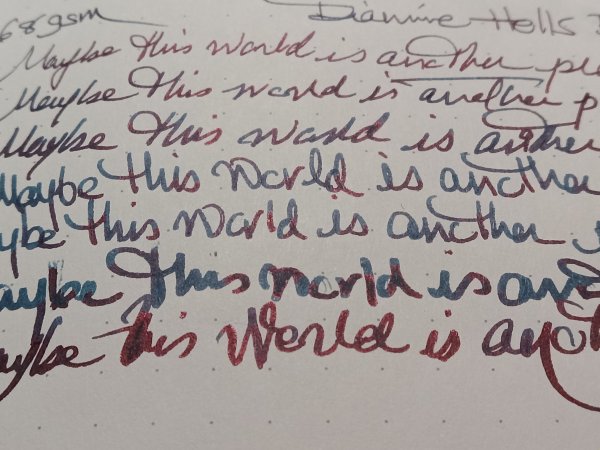 68gsm Diannine Hells
Maybe this world is another pl
Maybe This world is another p
Maybe This world is anther
Maybe this World is another
ybe this World is another
aybe This world is ano
aybe this World is anoth